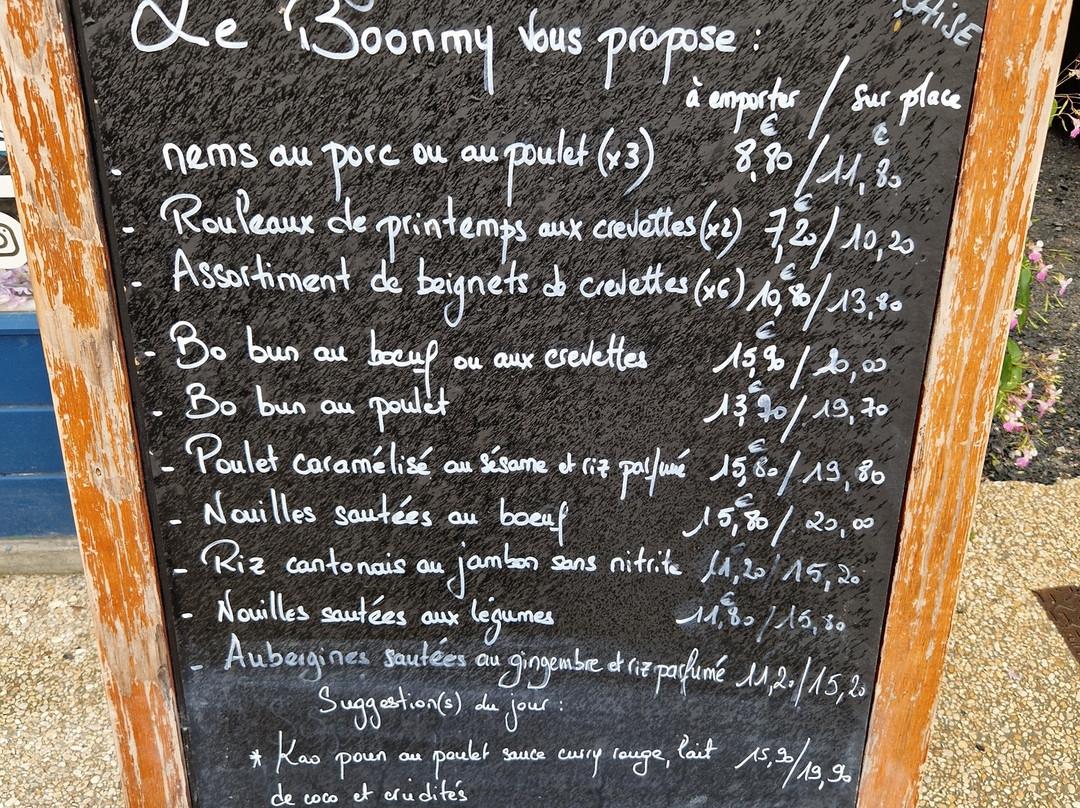 Le Boonmy vous propose :
à emporter / sur place
- nems au porc ou au poulet (x3) 8,80€ / 11,80€
- Rouleaux de printemps aux crevettes (x2) 7,20€ / 10,20
- Assortiment de beignets de crevettes (x6) 10,80€ / 13,80
- Bo bun au boeuf ou aux crevettes 15,90€ / 20,00
- Bo bun au poulet 13,70€ / 19,70
- Poulet caramélisé au sésame et riz parfumé 15,80€ / 19,80
- Nouilles sautées au boeuf 15,80€ / 20,00
- Riz cantonais au jambon sans nitrite 11,20 / 15,20
- Nouilles sautées aux légumes 11,80€ / 15,80
- Aubergines sautées au gingembre et riz parfumé 11,20 / 15,20
Suggestion(s) du jour :
* Kao poun au poulet sauce curry rouge, lait 15,90 / 19,90
de coco et crudités